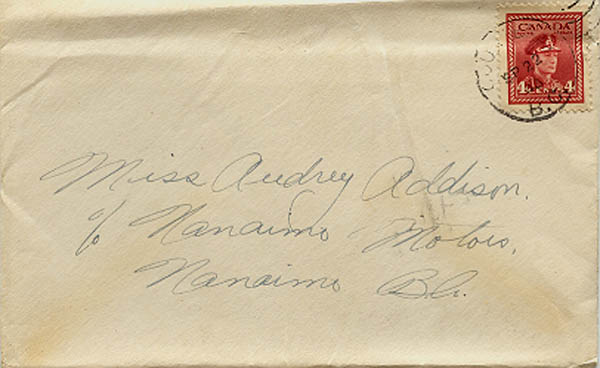 CANADA
4 CENTS 4
SP 22
B.C.
Miss Audrey Addison,
c/o Nanaimo Motors,
Nanaimo B.C.